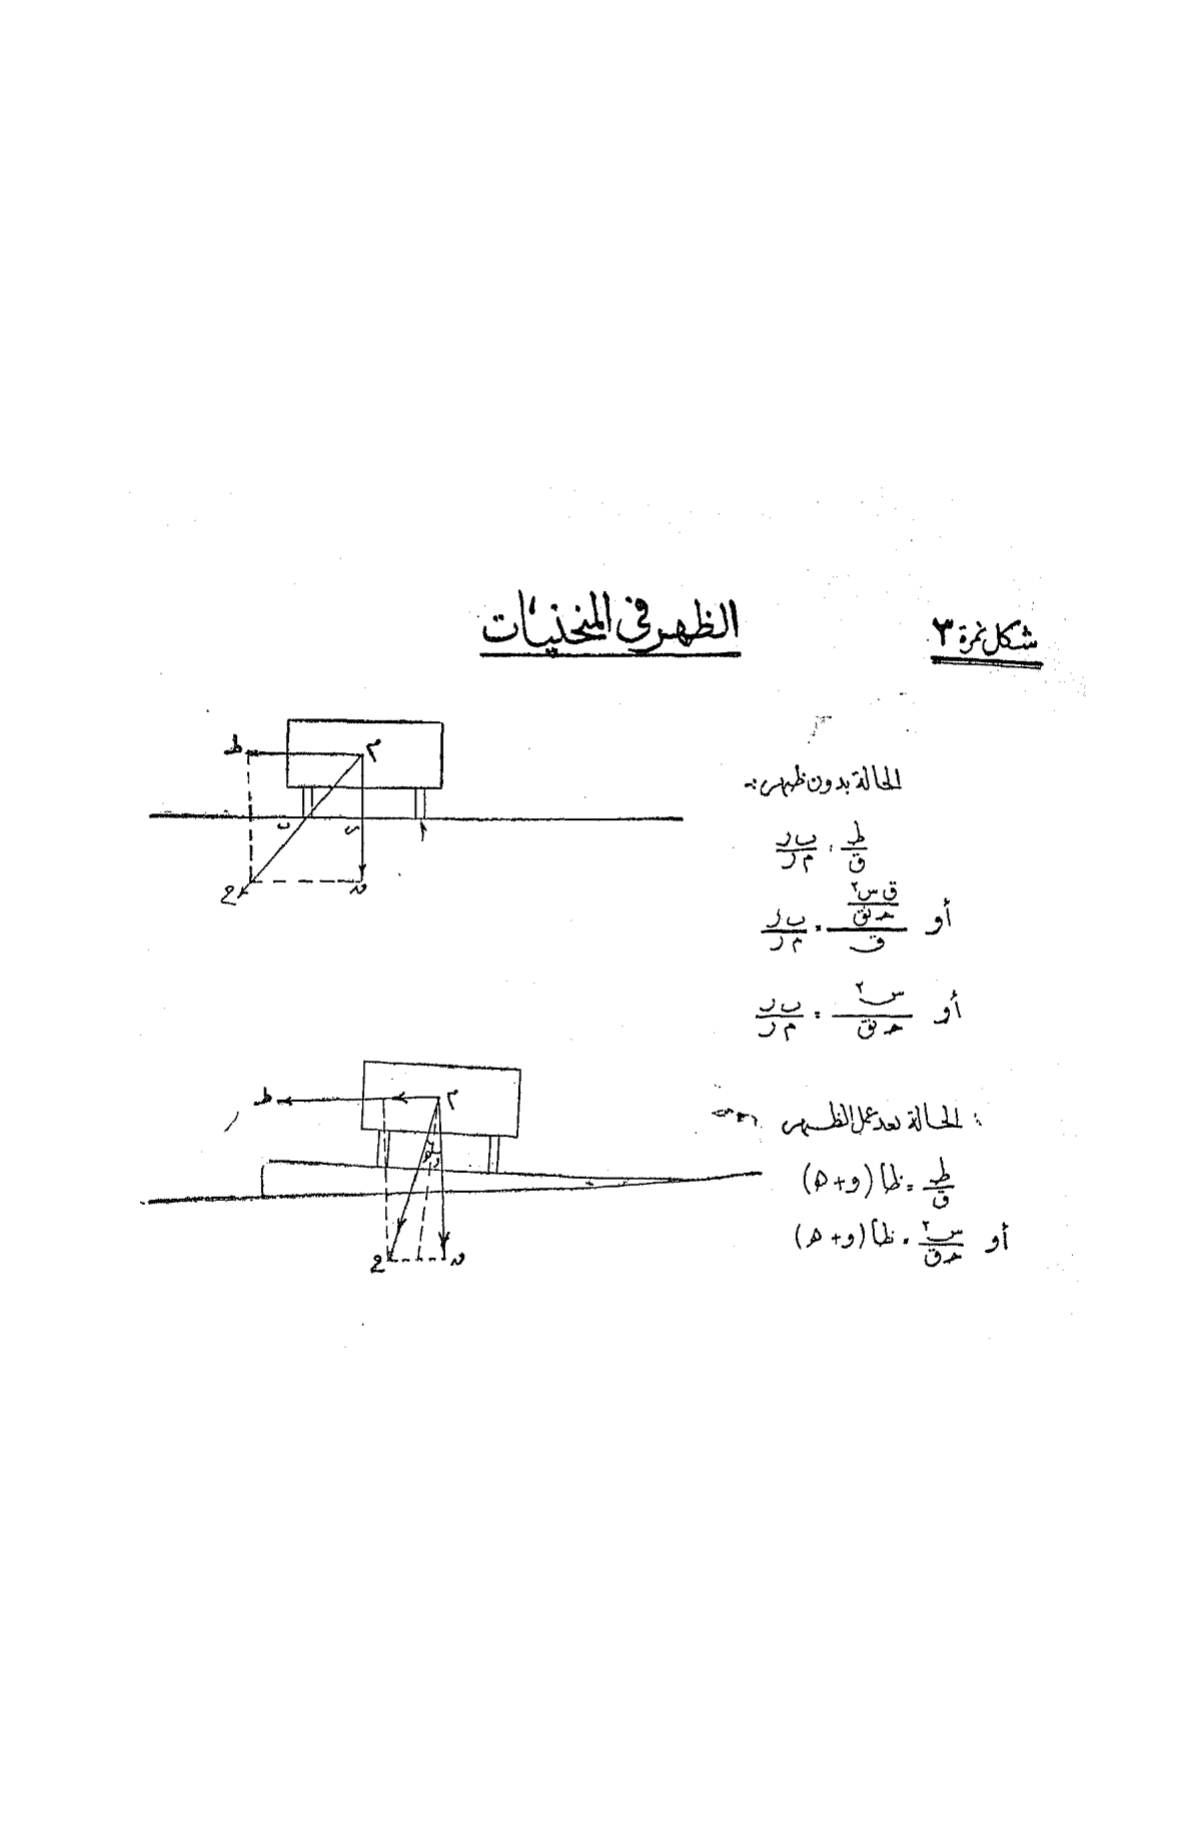 شكل نمرة ٣
الظهر في المنحنيات
ط
م
ب
ر
أ
ع
ن
الحالة بدون ظهر :-
ط/ق = ب ر/م ر
أو (ق س٢/حـ نق)/ق = ب ر/م ر
أو س٢/حـ نق = ب ر/م ر
ط
م
هـ
و
ع
ن
الحالة بعد عمل الظهر
ط/ق = ظا (و + هـ)
أو س٢/حـ نق = ظا (و + هـ)